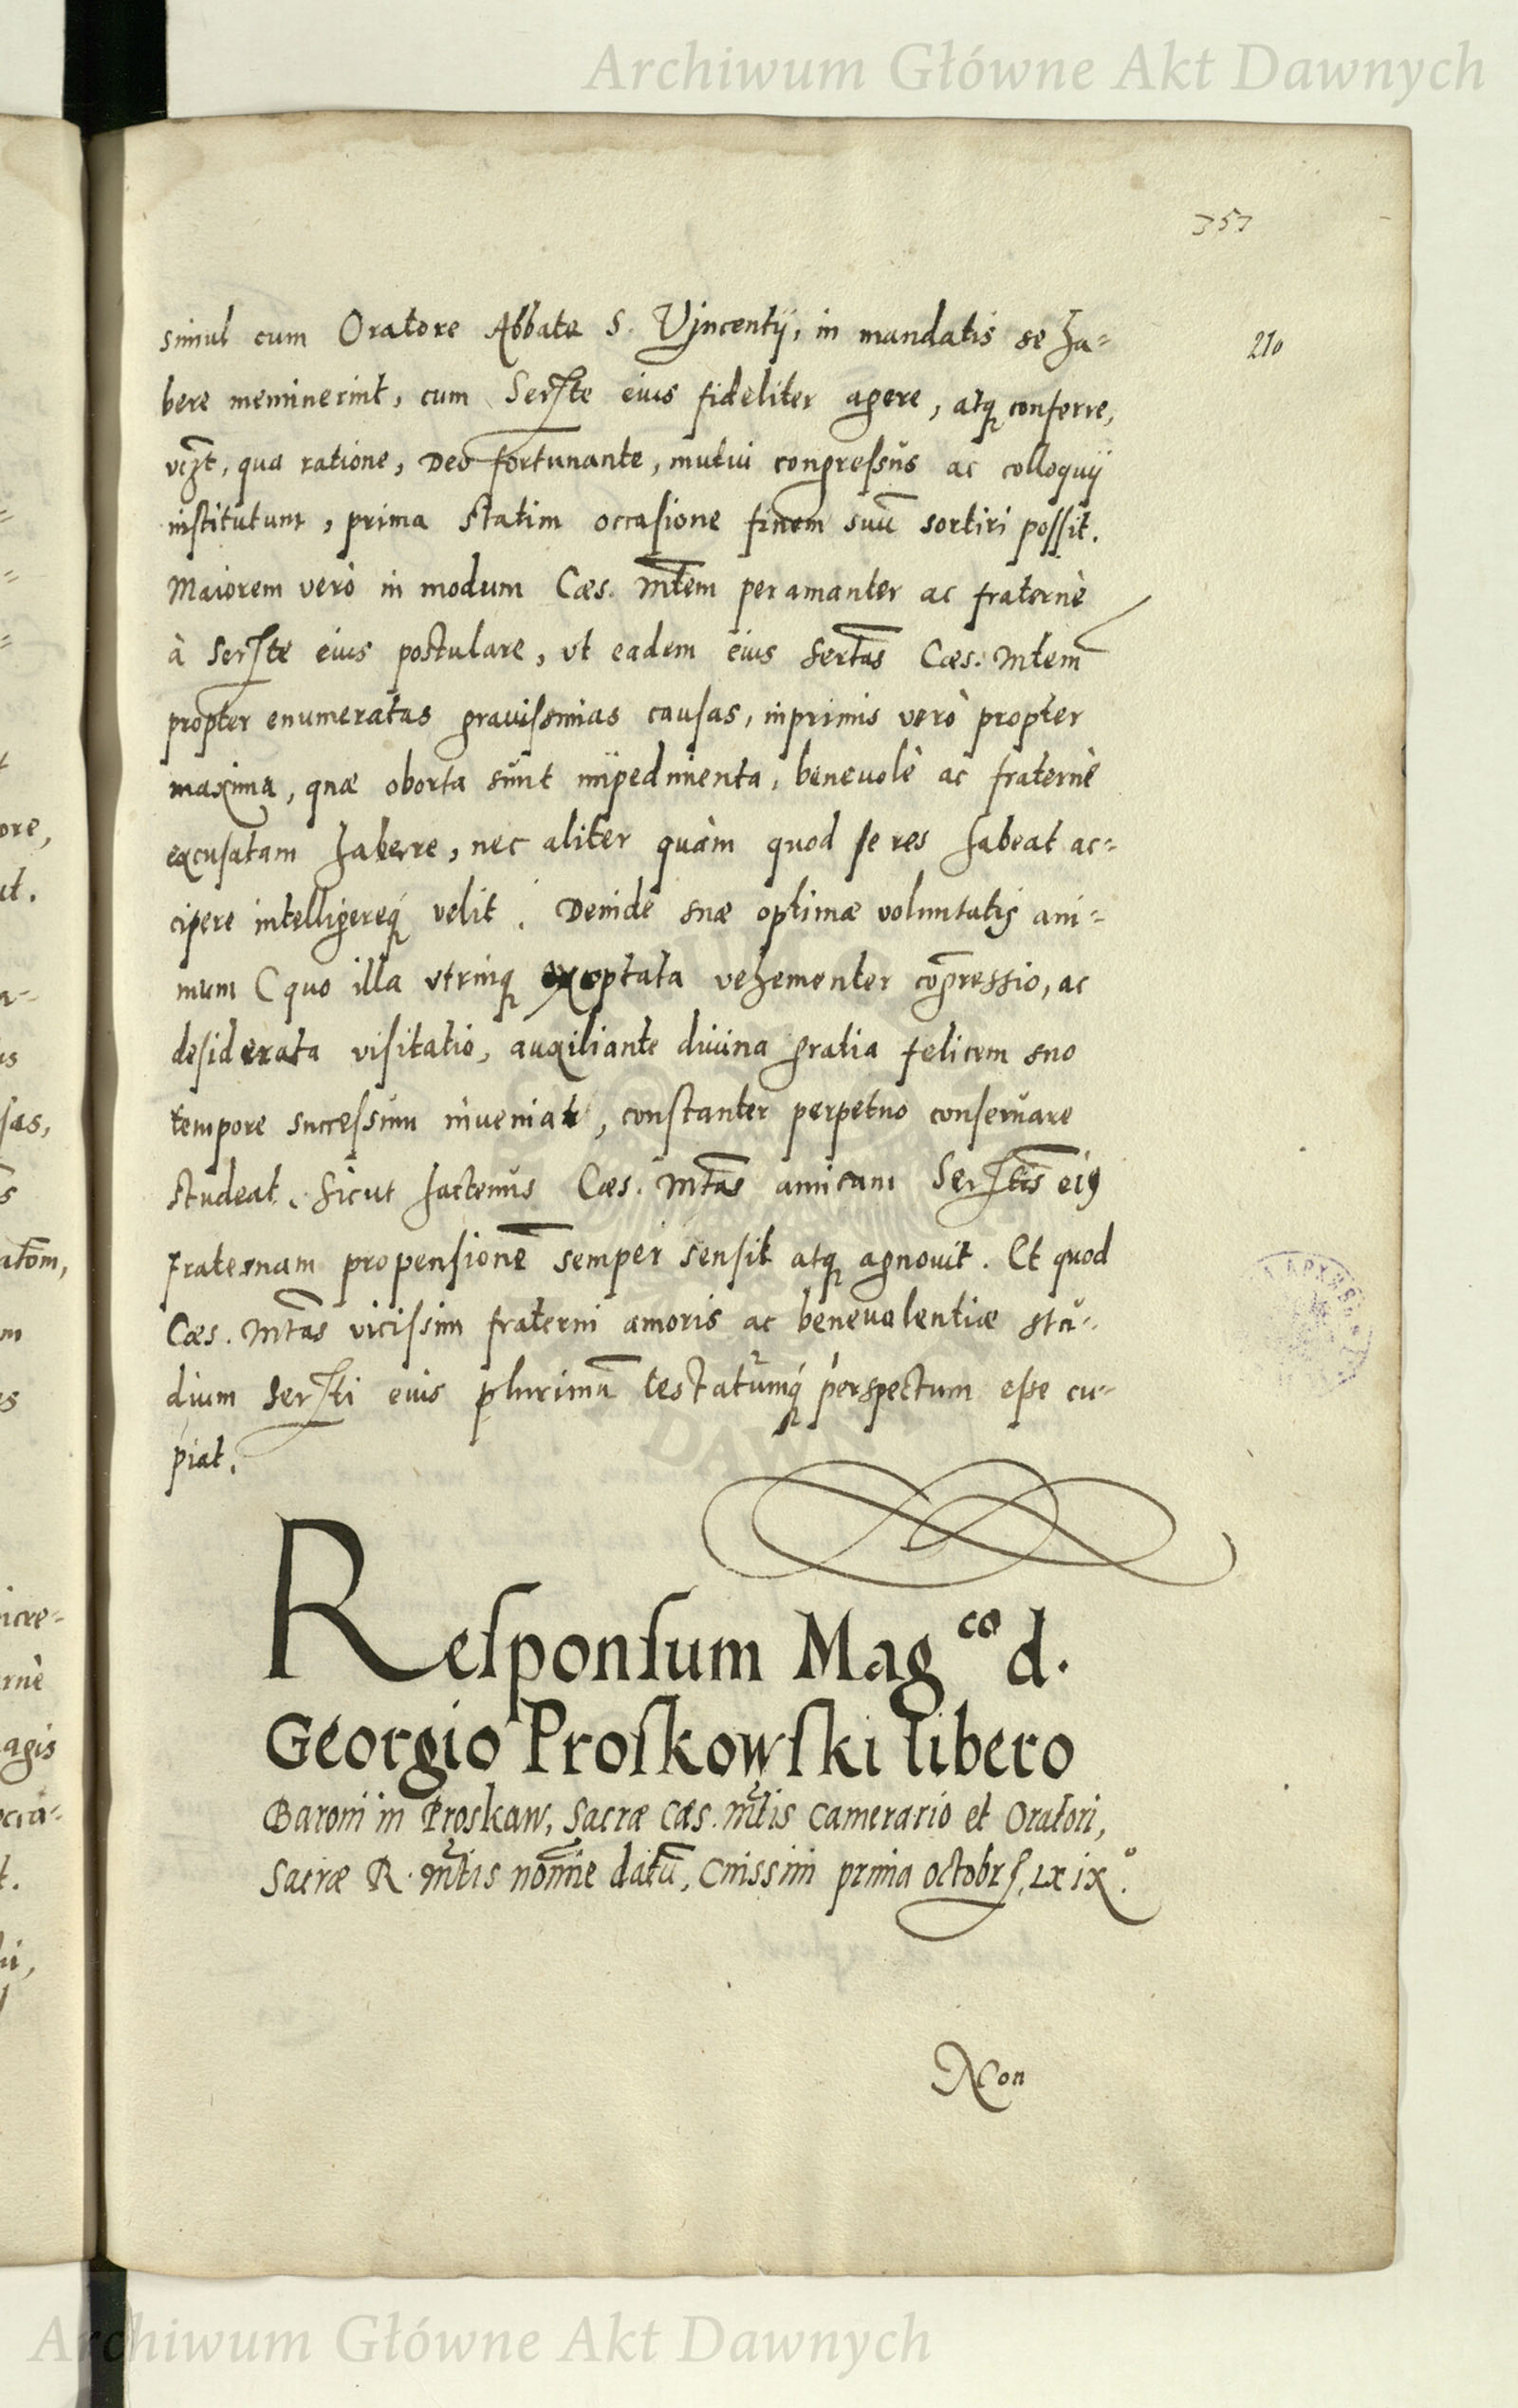 Archiwum Główne Akt Dawnych
357
210
simul cum Oratore Abbate S. Vjncentij, in mandatis se ha-
bere meminerint, cum Serste eius fideliter agere, atq conferre,
vizt, qua ratione, Deo fortunante, mutui congressus ac colloquij
institutum, prima statim occasione finem suū sortiri possit.
Maiorem verò in modum Cæs. Mtem peramanter ac fraternè
à Serste eius postulare, vt eadem eius Sertas Cæs. Mtem
propter enumeratas grauissimas causas, inprimis verò propter
maxima, quæ oborta sunt impedimenta, beneuolè ac fraternè
excusatam habere, nec aliter quàm quod se res habeat ac-
cipere intelligereq́ velit. Deinde suæ optimæ voluntatis ani-
mum (quo illa vtrinq exoptata vehementer cōgressio, ac
desiderata visitatio, auxiliante diuina gratia felicem suo
tempore successum inueniat, constanter perpetuo conseruare
studeat, sicut hactenus Cæs. Mtas amicam Serstis eiꝰ
fraternam propensionē semper sensit atq agnouit. Et quod
Cæs. Mtas vicissim fraterni amoris ac beneuolentiæ stu-
dium Sersti eius plurimū testatumq́ perspectum esse cu-
piat.
Responsum Mag co d.
Georgio Proskowski libero
Baroni in Proskaw, Sacræ Cæs. Mtis Camerario et Oratori,
Sacræ R. Mtis nomīe datū, Cnissini prima octobrꝭ, LXIX.°
Non
Archiwum Główne Akt Dawnych